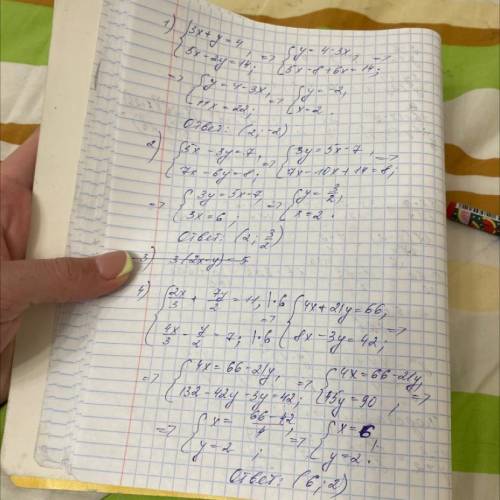 1) {3x+y=4, 5x-2y=14; => {y=4-3x, 5x-8+6x=14; =>
=> {y=4-3x, 11x=22; => {y=-2, x=2.
Ответ: (2; -2)
2) {5x-3y=7, 7x-6y=8; => {3y=5x-7, 7x-10x+14=8; =>
=> {3y=5x-7, 3x=6; => {y=3/2, x=2.
Ответ: (2; 3/2)
3) 3(2x-y)=5
4) {2x/3 + 7y/2 = 11, |·6 4x/3 - y/2 = 7; |·6 => {4x+21y=66, 8x-3y=42; =>
=> {4x=66-21y, 132-42y-3y=42; => {4x=66-21y, 45y=90; =>
=> {x= 66-42/4, y=2; => {x=6, y=2.
Ответ: (6; 2)